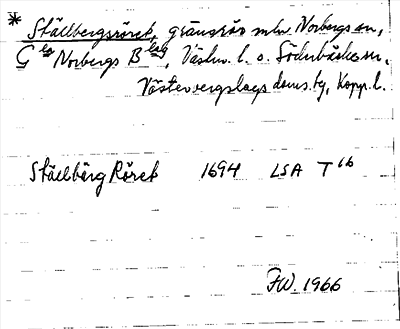 * Ställbergsröret, gränsrör mln Norbergs sn,
G la Norbergs B lag, Västm. l. o. Söderbärke sn,
Västerbergslags doms. hg, Kopp. l.
Ställbärg Röret 1694 LSA T 16
FW. 1966